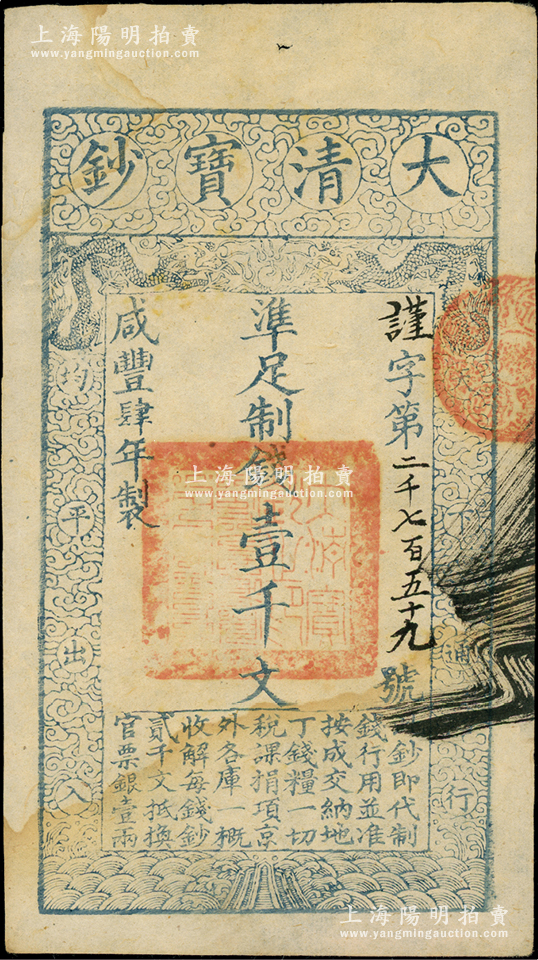 上海陽明拍賣
www.yangmingauction.com
大清寶鈔
天下通行
均平出入
謹字第二千七百五十九號
準足制錢壹千文
咸豐肆年製
上海陽明拍賣
www.yangmingauction.com
鈔即代制
錢行用並准
按成交納地
丁錢糧一切
稅課捐項京
外各庫一概
收解每錢鈔
貳千文抵換
官票銀壹兩
上海陽明拍賣
www.yangmingauction.com